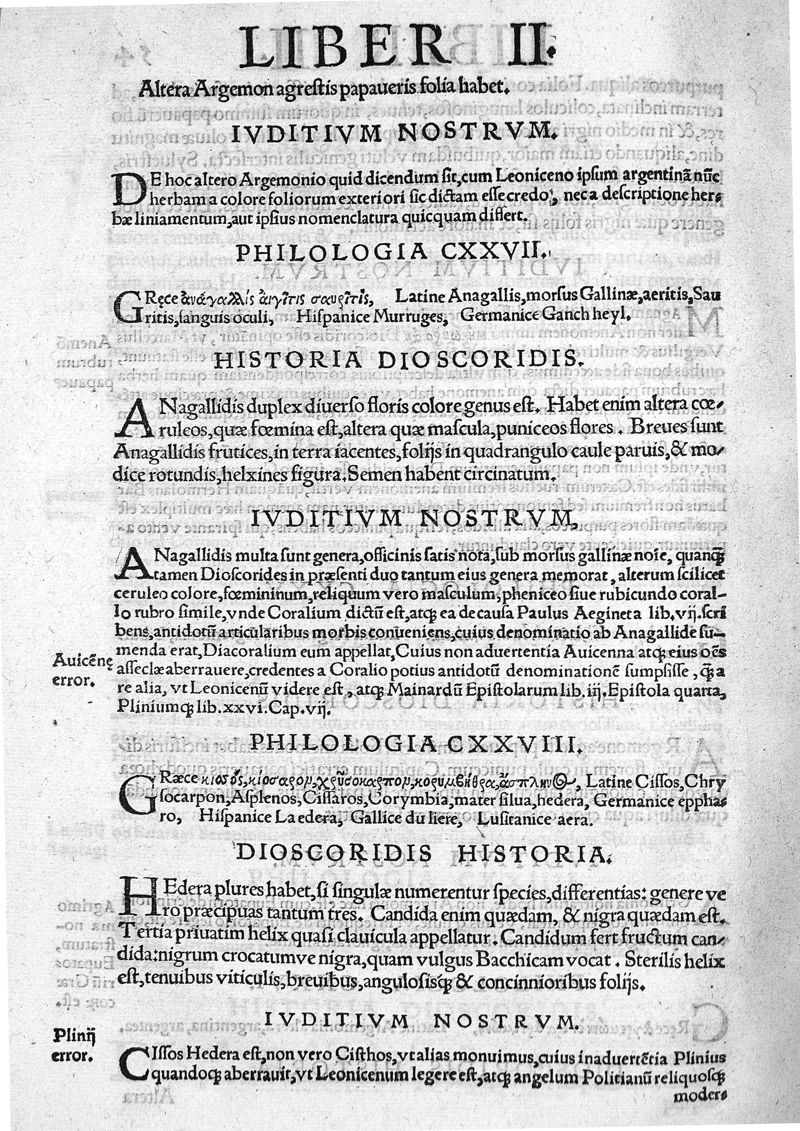 LIBER II.
Altera Argemon agrestis papaueris folia habet.
IVDITIVM NOSTRVM.
DE hoc altero Argemonio quid dicendum sit, cum Leoniceno ipsum argentinã nũc
herbam a colore foliorum exteriori sic dictam esse credo, nec a descriptione her-
bæ liniamentum, aut ipsius nomenclatura quicquam differt.
PHILOLOGIA CXXVII.
GRęce ἀνάγαλλὶς αἰγῖτις σαυρῖτις, Latine Anagallis, morsus Gallinæ, aeritis, Sau
ritis, sanguis oculi, Hispanice Murruges, Germanice Ganch heyl.
HISTORIA DIOSCORIDIS.
ANagallidis duplex diuerso floris colore genus est. Habet enim altera cœ-
ruleos, quæ fœmina est, altera quæ mascula, puniceos flores. Breues sunt
Anagallidis frutices, in terra iacentes, folijs in quadrangulo caule paruis, & mo-
dice rotundis, helxines figura. Semen habent circinatum.
IVDITIVM NOSTRVM,
ANagallidis multa sunt genera, officinis satis nota, sub morsus gallinæ noïe, quanq̃
tamen Dioscorides in præsenti duo tantum eius genera memorat, alterum scilicet
ceruleo colore, fœmininum, reliquum vero masculum, pheniceo siue rubicundo coral-
lo rubro simile, vnde Coralium dictũ est, atq; ea de causa Paulus Aegineta lib. vij. scri
bens, antidotũ articularibus morbis conueniens, cuius denominatio ab Anagallide su-
menda erat, Diacoralium eum appellat, Cuius non aduertentia Auicenna atq; eius oẽs
asseclæ aberrauere, credentes a Coralio potius antidotũ denominationẽ sumpsisse, q̃ a
re alia, vt Leonicenũ videre est, atq; Mainardũ Epistolarum lib. iij. Epistola quarta,
Pliniumq; lib. xxvi. Cap. vij.
Auicẽnę
error.
PHILOLOGIA CXXVIII.
GRæce κισσὸς, κίσσαρον, χρῦσοκαρπον, κορυμβήθρα, ἄσπληνος, Latine Cissos, Chry
socarpon, Asplenos, Cissaros, Corymbia, mater silua, hedera, Germanice epphæ
ro, Hispanice La edera, Gallice du liere, Lusitanice aera.
DIOSCORIDIS HISTORIA.
HEdera plures habet, si singulæ numerentur species, differentias: genere ve
ro præcipuas tantum tres. Candida enim quædam, & nigra quædam est.
Tertia priuatim helix quasi clauicula appellatur. Candidum fert fructum can-
dida: nigrum crocatumve nigra, quam vulgus Bacchicam vocat. Sterilis helix
est, tenuibus viticulis, breuibus, angulosisq; & concinnioribus folijs.
IVDITIVM NOSTRVM.
Plinij
error.
CIssos Hedera est, non vero Cisthos, vt alias monuimus, cuius inaduertẽtia Plinius
quandoque aberrauit, vt Leonicenum legere est, atq; angelum Politianũ reliquosq;
moder-